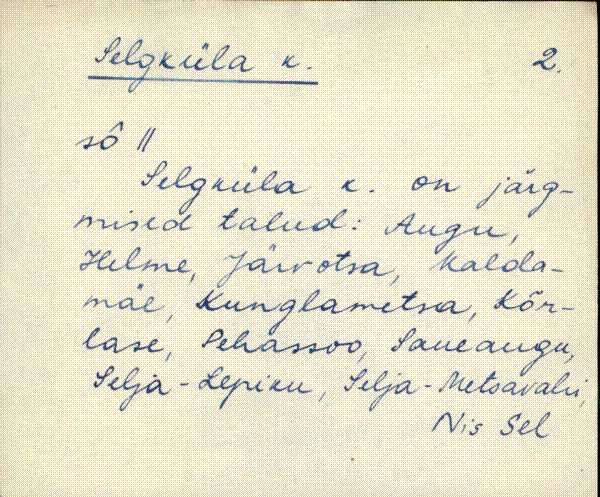 Selgküla k. 2.
sô ||
Selgküla k. on järg-
mised talud: Augu,
Helme, Järvotsa, Kalda-
mäe, Kunglametsa, Kõr-
lase, Pehassoo, Saueaugu,
Selja-Lepiku, Selja-Metsavahi,
Nis Sel